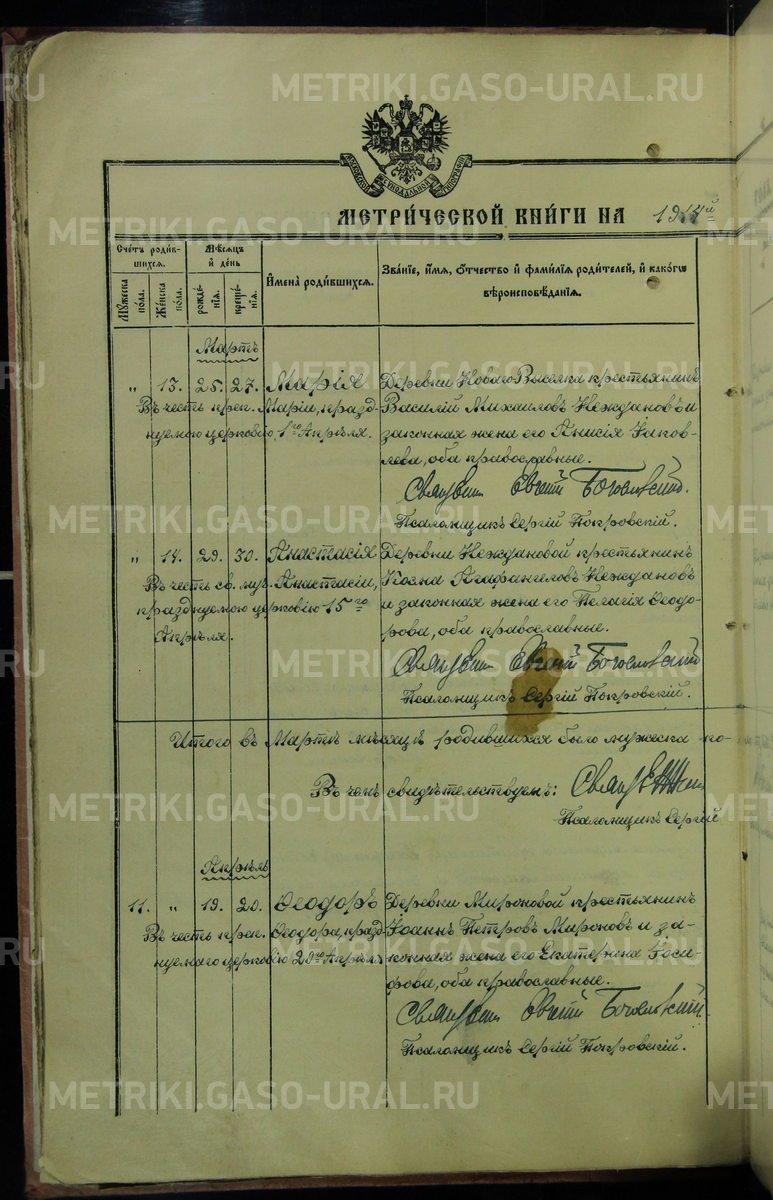 МОСКОВСКОЙ СѴНОДАЛЬНОЙ ТИПОГРАФІИ
МЕТРИ́ЧЕСКОЙ КНИ́ГИ НА 1914й
Сче́тъ роди́в-
шихся.
Мужеска по́ла.
Же́нска по́ла.
Мѣ́сяцъ
и҆ де́нь
рожде́-
нїя.
креще́-
нїя.
И҆мена̀ роди́вшихся.
Зва́нїе, и҆́мя, ѻ҆́тчество и҆ фами́лїя роди́телей, и҆ како́гѡ
вѣроисповѣ́данїя.
Мартъ
„ 13. 25. 27. Марія
Въ честь преп. Маріи, празд-
нуемой церковію 1го Апрѣля.
Деревни Новаго Выселка крестьянинъ
Василій Михаиловъ Неждановъ и
законная жена его Анисія Іаков-
лева, оба православные.
Священ. Евгеній Богословскій.
Псаломщикъ Сергій Покровскій.
„ 14. 29. 30. Анастасія
Въ честь св. муч. Анастасіи,
празднуемою церковію 15го
Апрѣля.
Деревни Неждановой крестьянинъ
Косма Агафангеловъ Неждановъ
и законная жена его Пелагія Ѳеодо-
рова, оба православные.
Священ. Евгеній Богословскій
Псаломщикъ Сергій Покровскій.
Итого въ Мартѣ мѣсяцѣ родившихся было мужеска по-
Въ чемъ свидѣтельствуемъ:
Псаломщикъ Сергій
Апрѣль
11. „ 19. 20. Ѳеодоръ
Въ честь преп. Ѳеодора, празд-
нуемаго церковію 20го Апрѣля
Деревни Мироновой крестьянинъ
Іоаннъ Петровъ Мироновъ и за-
конная жена его Екатерина Іоси-
фова, оба православные.
Священ. Евгеній Богословскій.
Псаломщикъ Сергій Покровскій.
METRIKI.GASO-URAL.RU